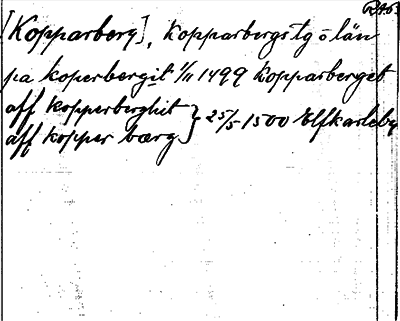 RAÖ
[Kopparberg], Kopparbergs tg o län
pa koperbergit 1/11 1499 Kopparberget
aff kopperberghit
aff kopper bærg } 25/5 1500 Elfkarleby